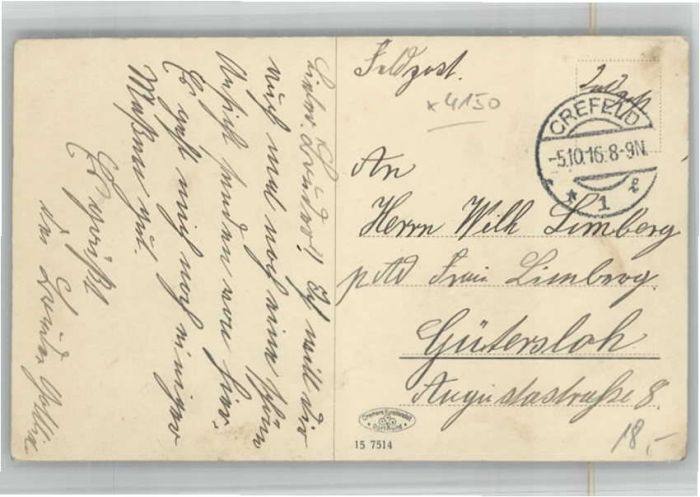 Lieber Bruder! Ich will dir
auch mal noch eine schöne
Ansicht senden von hier.
Es geht mir noch einiger
Maßen gut.
Es grüßt
dein Bruder
Feldpost.
Feldpost
x 4150
CREFELD
-5.10.16.8-9N.
* 1 e
An
Herrn Wilh Limberg
p Ad Frau Limberg.
Gütersloh
Augustastraße 8.
15 7514
18,-